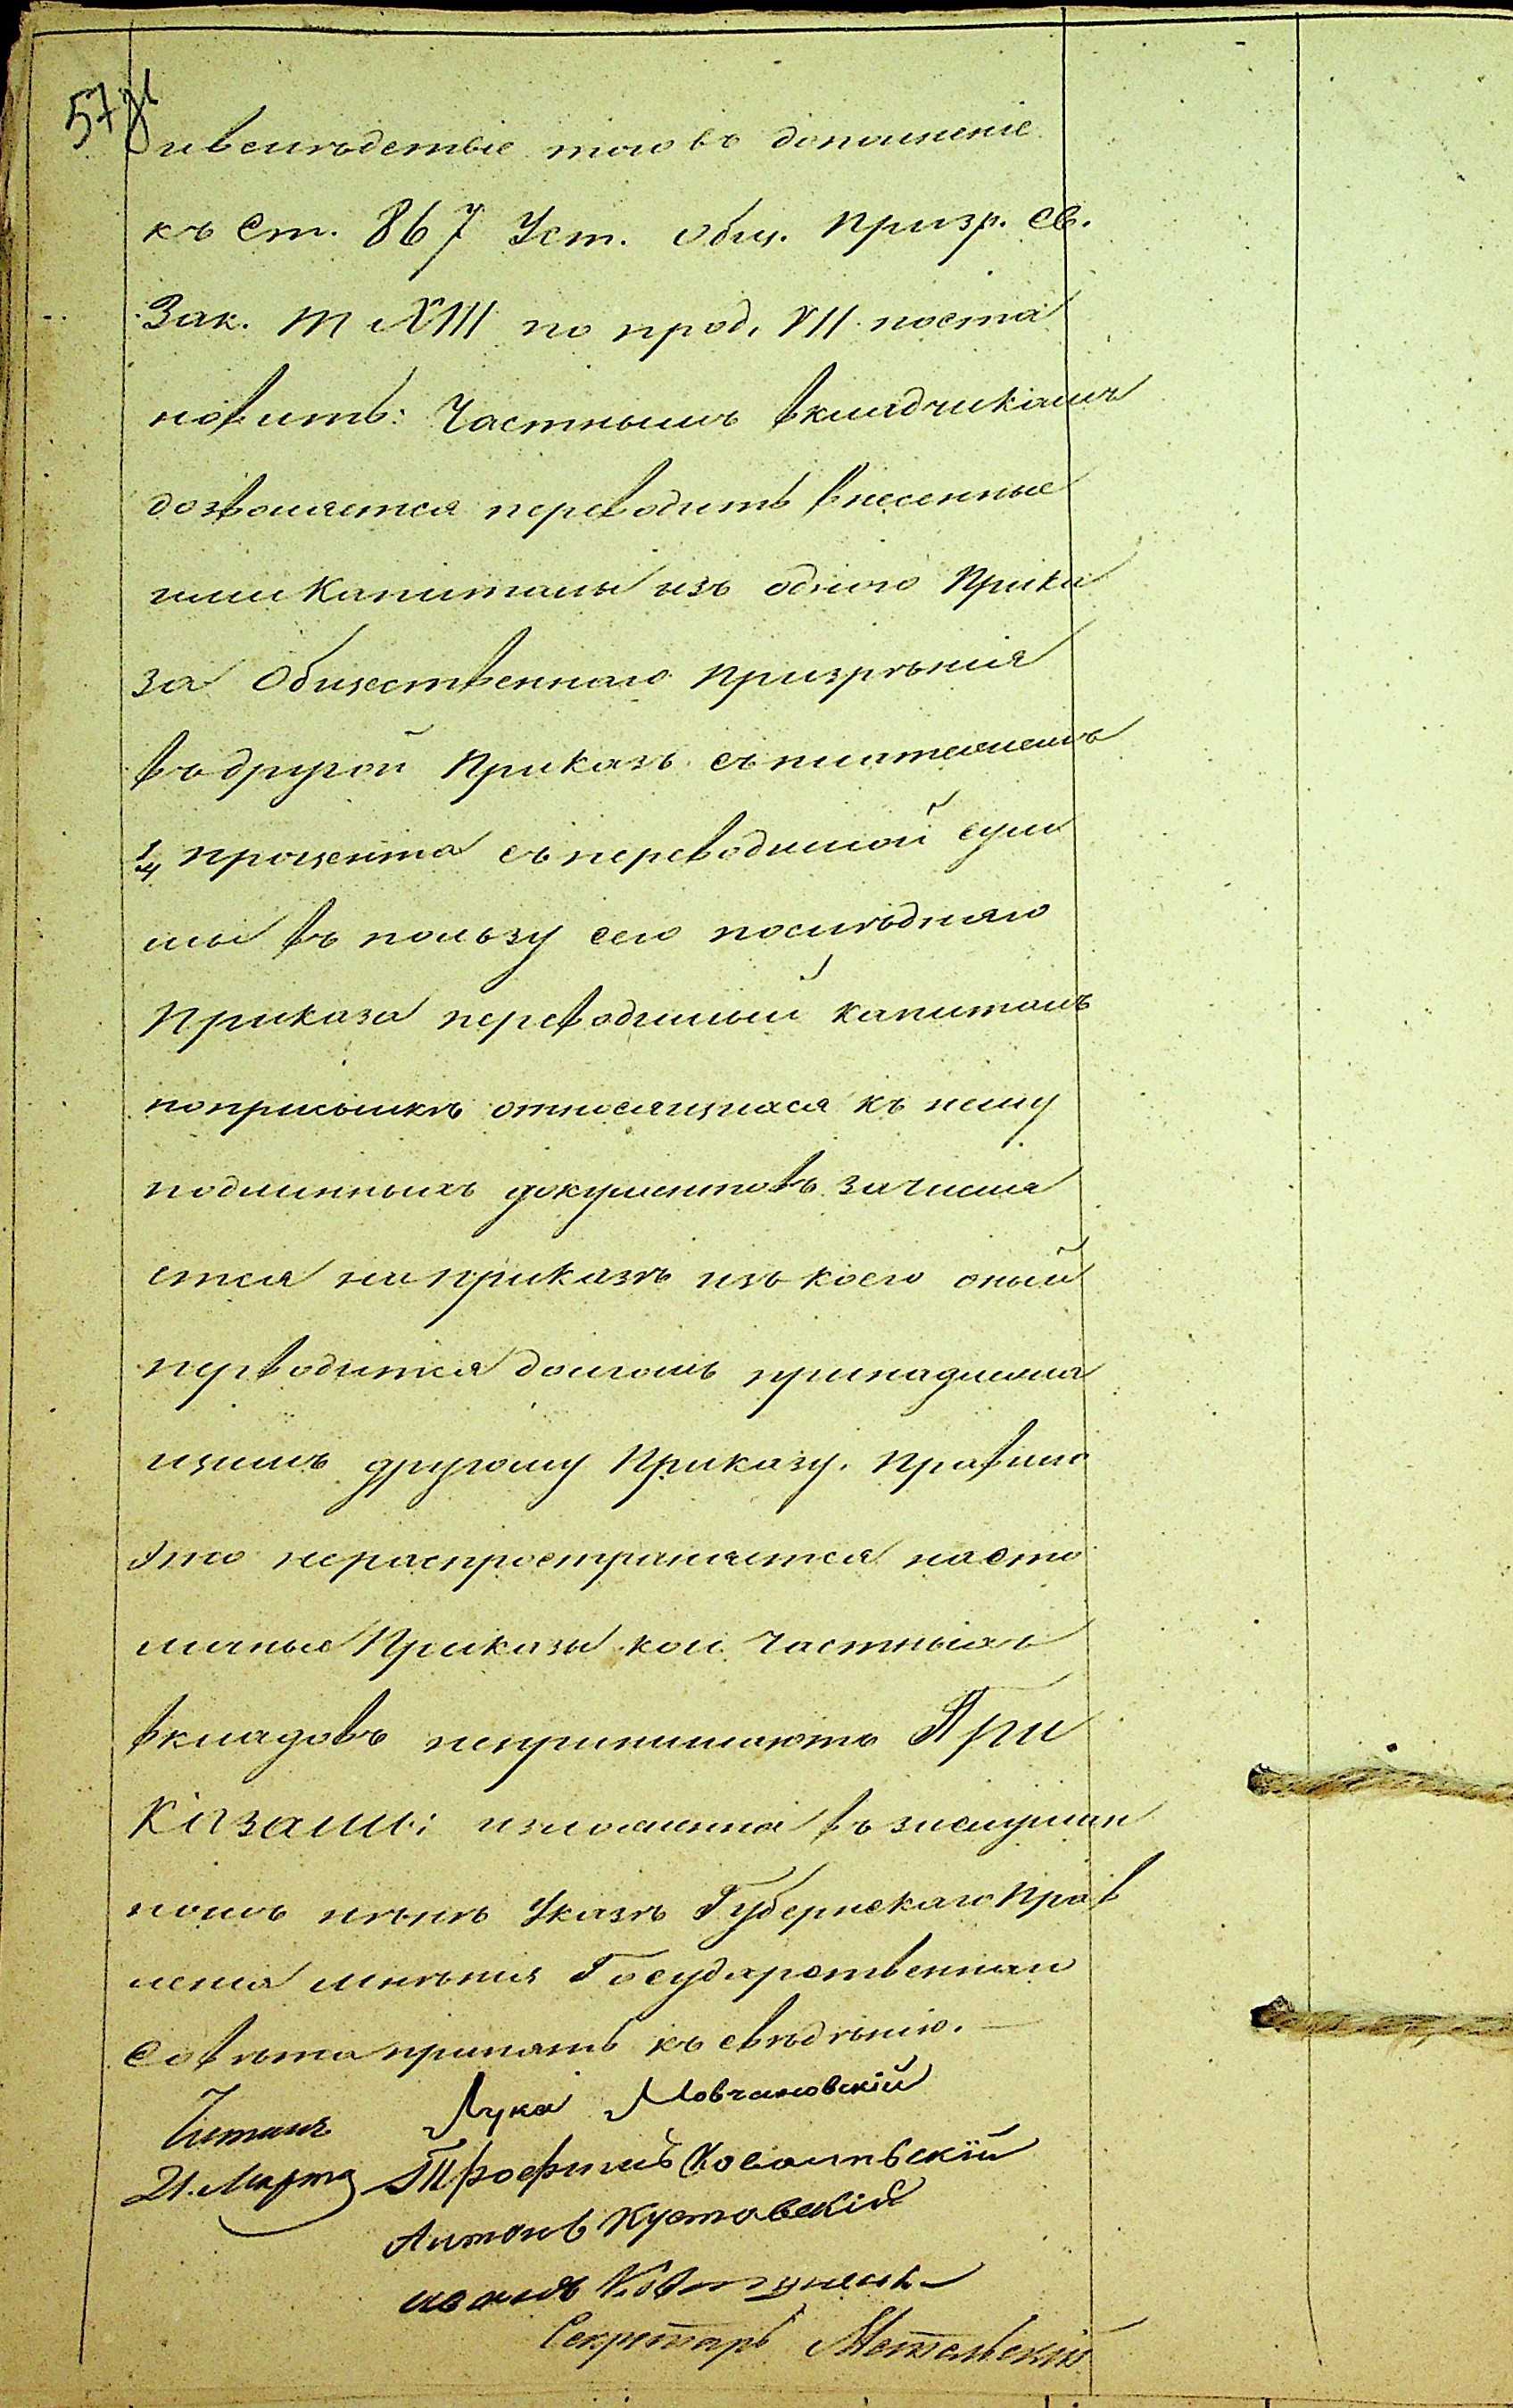 57 об
и вслѣдствіе того въ дополненіе
къ Ст. 867 Уст. общ. Призр. Св.
Зак. т XIII по прод. VII поста
новить: Частнымъ вкладчикамъ
дозволяется переводить внесенные
ими Капиталы изъ одного Прика
за Общественнаго Призрѣнія
въ другой Приказъ съ платежемъ
1/4 процента съ переводимой сум
мы въ пользу сего послѣдняго
Приказа переводимый капиталъ
по присылкѣ относящихся къ нему
подлинныхъ документовъ зачисля
ется на приказѣ изъ коего оный
переводится долгомъ принадлежа
щимъ другому Приказу. Правило
это не распространяется на сто
личные Приказы кои частныхъ
вкладовъ не принимаютъ При
Казали: изложенна въ заслушан
номъ указѣ Губернскаго Прав
ленія мнѣнія Государственнаго
Совѣта принять къ свѣдѣнію. —
Читалъ Лука Мовчановскій
21. Марта Трофимъ Ковалевскій
Антонъ Кустовскій
Секретарь Метельскій